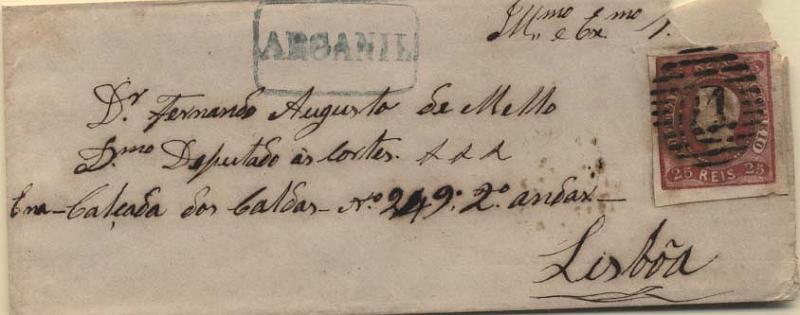 Ill.mo e Ex.mo Sr.
Dr. Fernando Augusto de Mello
D.mo Deputado ás Cortes. &&&
Calçada dos Caldas Nº 249. 2.º andar
Lisbôa
1
25 REIS 25